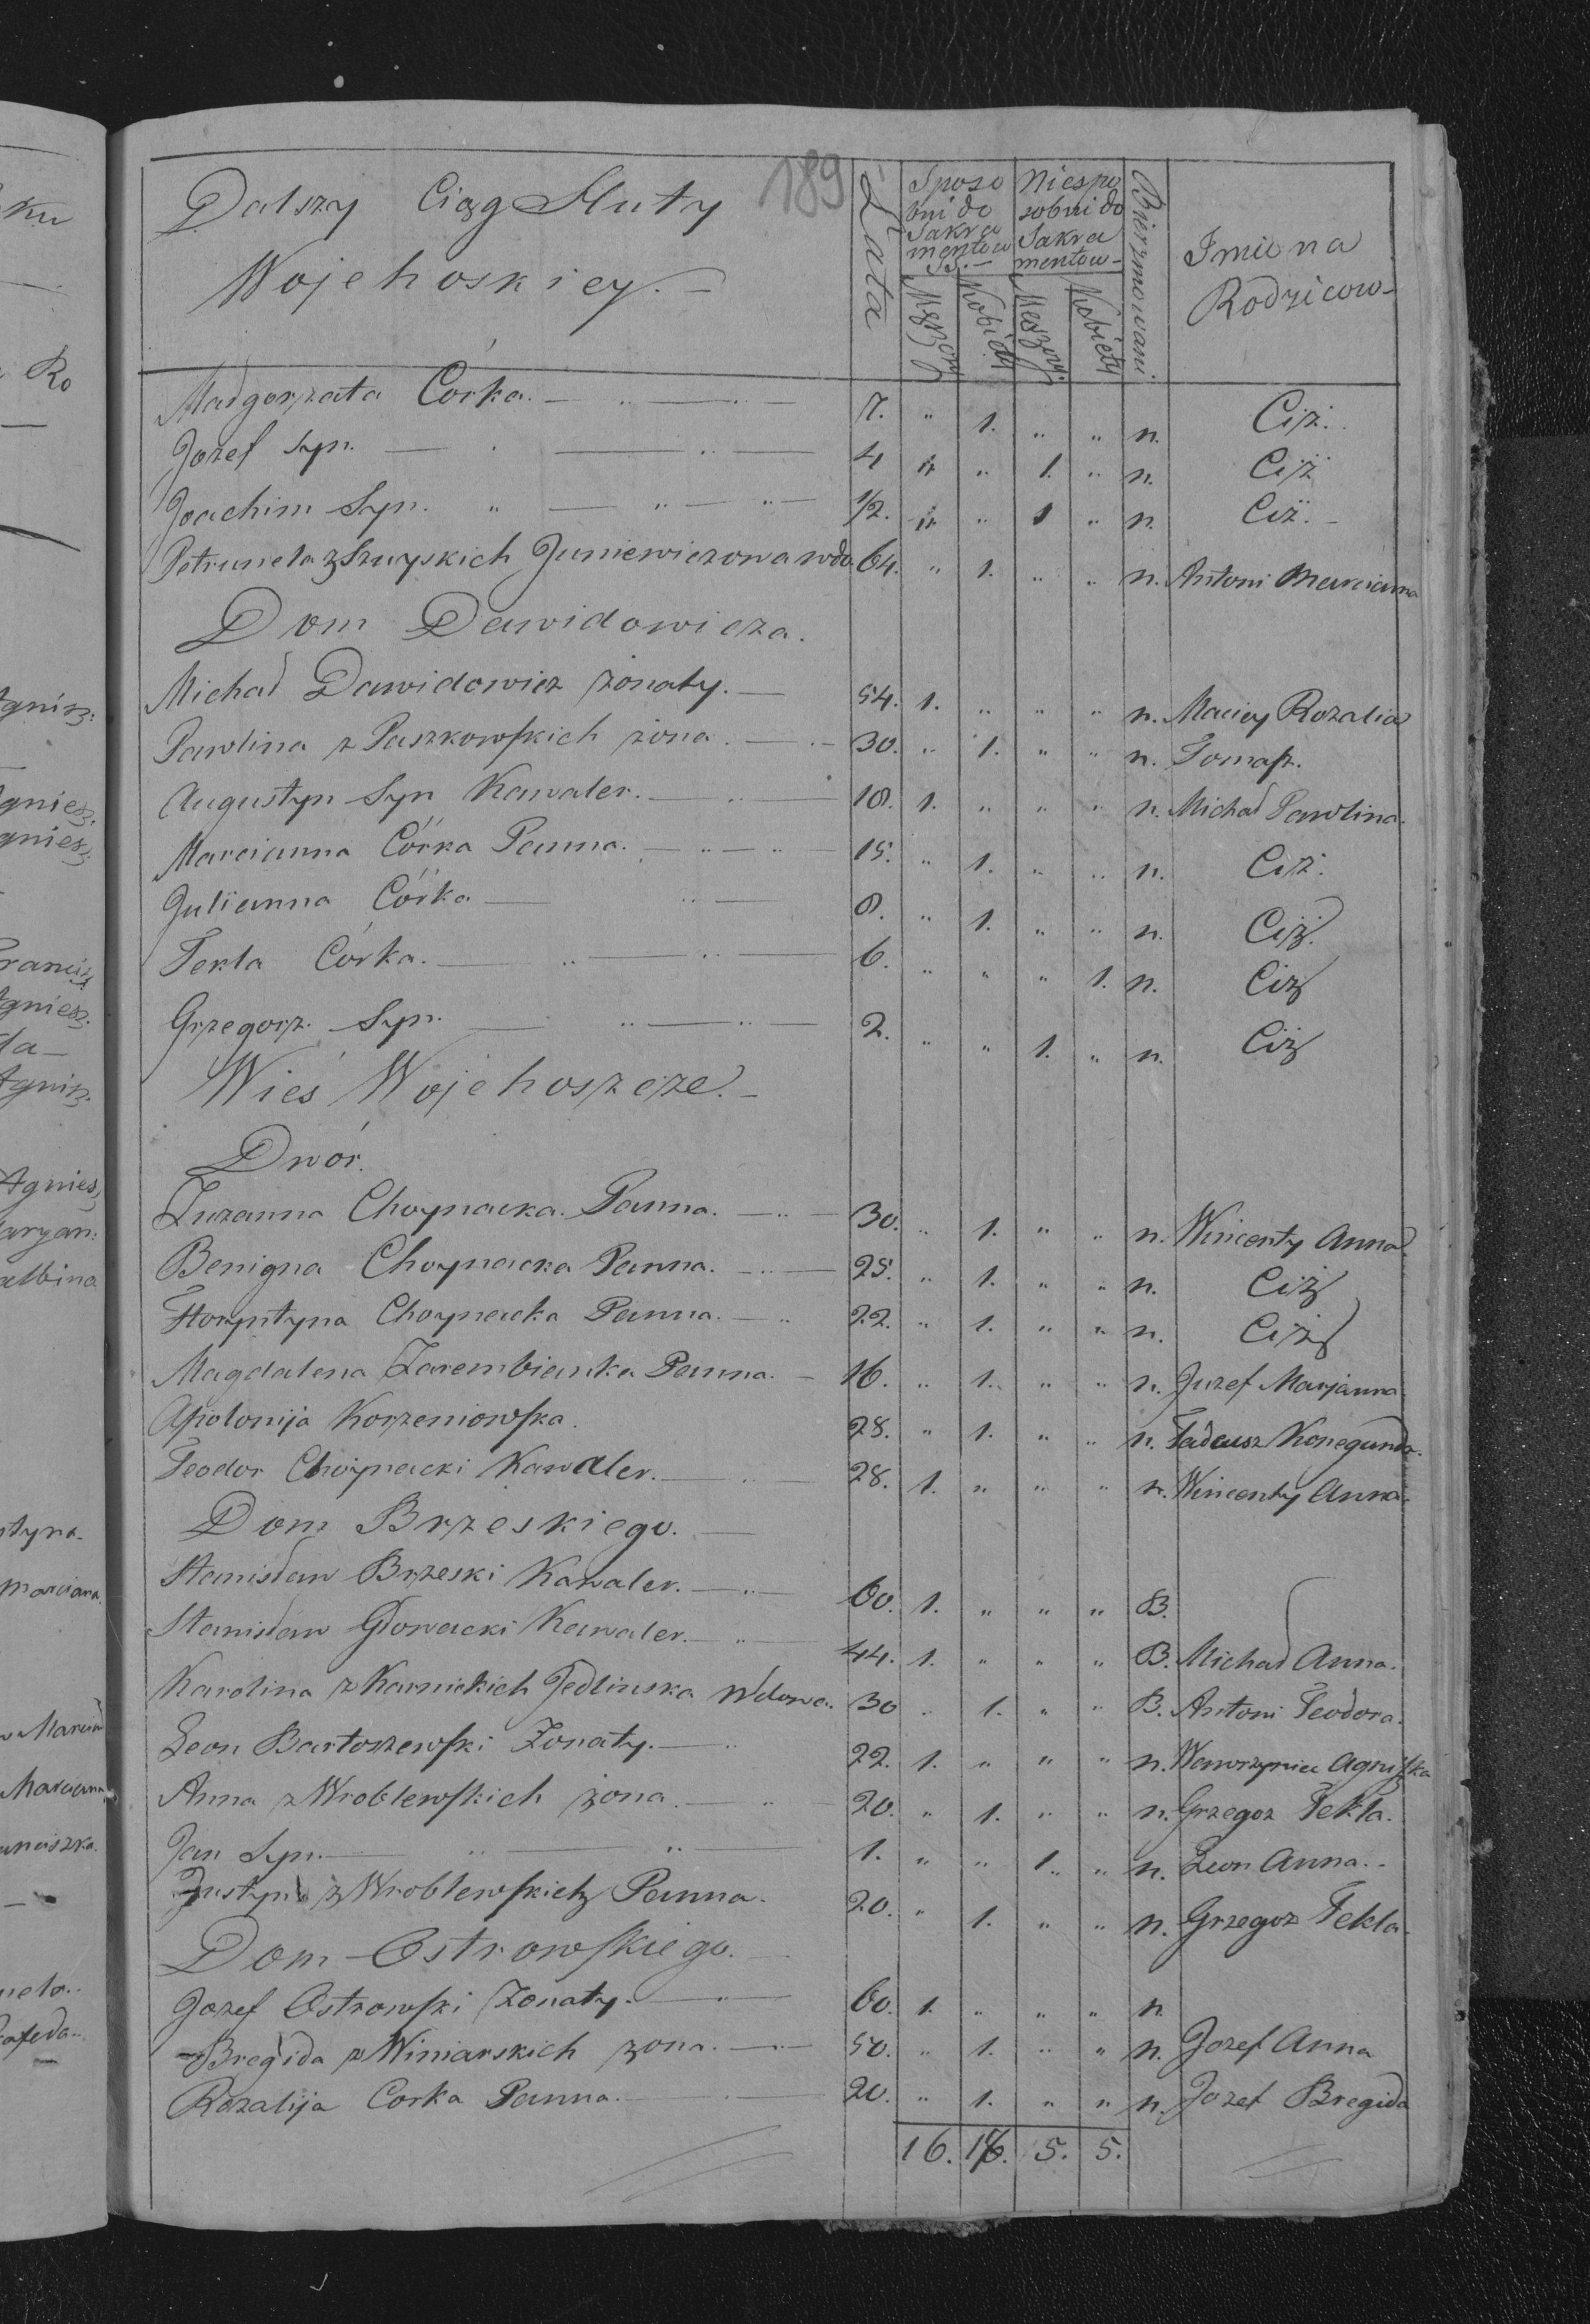 189
Dalszy Ciąg Huty
Wojehoskiey.
Lata
Sposobni do Sakramentow SS.
Niesposobni do Sakramentow
Męzczy
Kobiety
Męszczy
Kobiety
Bierzmowani
Imiena Rodzicow
Małgorzata Córka. 7. " 1. " " n. Ciż.
Jozef Syn. 4 " " 1. " n. Ciż
Joachim Syn. 1/2. " " 1 " n. Ciż.
Petrunela z Szuyskich Juniewiczowa wdo. 64. " 1. " " n. Antoni Marcianna
Dom Dawidowicza.
Michał Dawidowicz żonaty. 54. 1. " " " n. Maciey Rozalia
Pawlina z Paszkowskich żona. 30. " 1. " " n. Tomasz.
Augustyn Syn Kawaler. 18. 1. " " " n. Michał Pawlina.
Marcianna Córka Panna. 15. " 1. " " n. Ciż.
Julianna Córka 8. " 1. " " n. Ciż.
Tekla Córka. 6. " " " 1. n. Ciż
Grzegorz Syn. 2. " " 1. " n. Ciż
Wieś Wojehoszcze.
Dwór.
Zuzanna Choynacka Panna. 30. " 1. " " n. Wincenty Anna.
Benigna Choynacka Panna. 25. " 1. " " n. Ciż
Floryntyna Choynacka Panna. 22. " 1. " " n. Ciż
Magdalena Zarembianka Panna. 16. " 1. " " n. Juzef Marjanna.
Apolonija Korzeniowska. 28. " 1. " " n. Tadeusz Konegunda.
Teodor Choynacki Kawaler. 28. 1. " " " n. Wincenty Anna.
Dom Brzeskiego.
Stanisław Brzeski Kawaler. 60. 1. " " " B.
Stanisław Głowacki Kawaler. 44. 1. " " " B. Michał Anna.
Karolina z Karnickich Jedlinska Wdowa. 30 " 1. " " B. Antoni Teodora.
Leon Bartoszewski Żonaty. 22. 1. " " " n. Wawrzyniec Agniszka
Anna z Wroblewskich żona. 20. " 1. " " n. Grzegoz Tekla.
Jan Syn. 1. " " 1. " n. Leon Anna.
Justyna z Wroblewskich Panna. 20. " 1. " " n. Grzegoz Tekla.
Dom Ostrowskiego.
Jozef Ostrowski Żonaty. 60. 1. " " " n.
Bregida z Winiarskich żona. 50. " 1. " " n. Jozef Anna
Rozalija Corka Panna. 20. " 1. " " n. Jozef Bregida
16. 18. 5. 5.